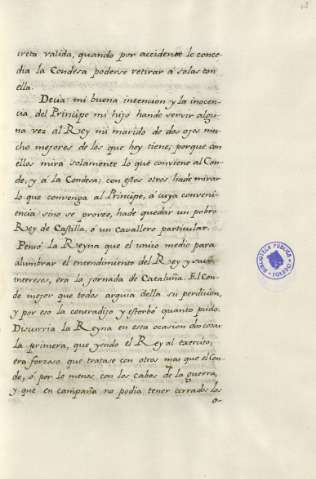 creta valida, quando por accidente le conce-
dia la Condesa poderse retirar á solas con
ella.
Decia mi buena intencion y la inocen-
cia, del Principe mi hijo hande servir algu-
na vez al Rey mi marido de dos ojos mu-
cho mejores de los que hoy tiene; porque con
ellos mira solamente lo que conviene al Con-
de, y á la Condesa; con estos otros ha de mirar
lo que convenga al Principe, á cuya conveni-
encia sino se provee, hade quedar un pobre
Rey de Castilla, ó un cavallero particular.
Pensó la Reyna que el unico medio para
alumbrar el entendimiento del Rey y sus
intereses, era la jornada de Cataluña. El Con-
de mejor que todos arguia della su perdicion,
y por eso la contradijo y estorbó quanto pudo.
Discurria la Reyna en esta ocasion dos cosas
la primera, que yendo el Rey al exercito,
era forzoso que tratase con otros mas que el Con-
de, ó por lo menos con los cabos de la guerra,
y que en campaña no podia tener cerrados los
o-
BIBLIOTECA PUBLICA
TOLEDO